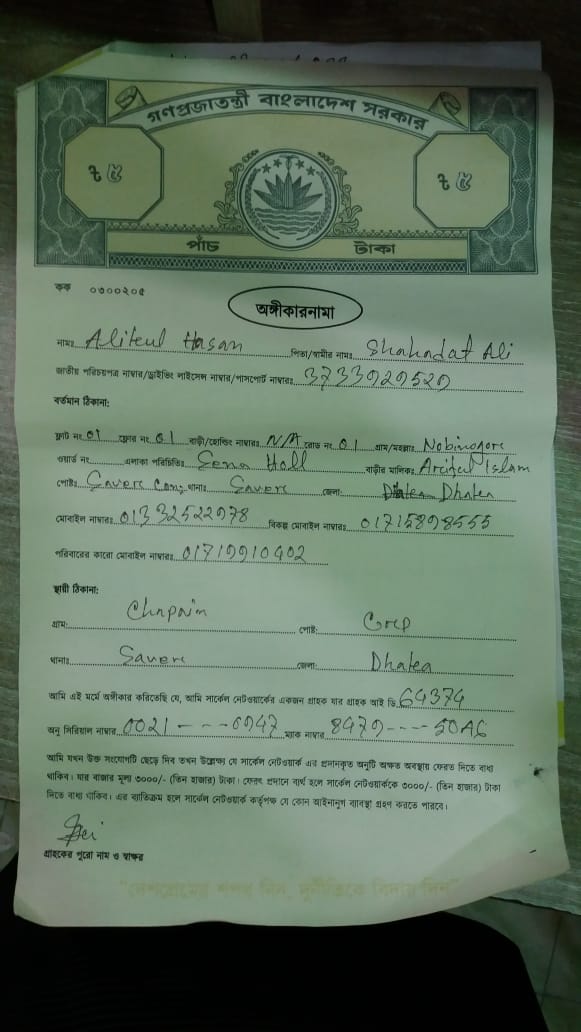 গণপ্রজাতন্ত্রী বাংলাদেশ সরকার
৳ ৫ ৳ ৫
পাঁচ টাকা
কক ০৩০০২০৫
অঙ্গীকারনামা
নামঃ Aliteul Hasan পিতা/স্বামীর নামঃ Shahadat Ali
জাতীয় পরিচয়পত্র নাম্বার/ড্রাইভিং লাইসেন্স নাম্বার/পাসপোর্ট নাম্বারঃ 3733929529
বর্তমান ঠিকানা:
ফ্লাট নং 01 ফ্লোর নং 01 বাড়ী/হোল্ডিং নাম্বারঃ N/A রোড নং 01 গ্রাম/মহল্লাঃ Nobinogore
ওয়ার্ড নং এলাকা পরিচিতিঃ Sena Holl বাড়ীর মালিক: Ariful Islam
পোষ্টঃ Savere থানাঃ Savere জেলা: Dhatea
মোবাইল নাম্বারঃ 01332522978 বিকল্প মোবাইল নাম্বারঃ 01715898555
পরিবারের কারো মোবাইল নাম্বারঃ 01719910402
স্থায়ী ঠিকানা:
গ্রাম: Chapain পোষ্ট:
থানাঃ Savere জেলা: Dhatea
আমি এই মর্মে অঙ্গীকার করিতেছি যে, আমি সার্কেল নেটওয়ার্কের একজন গ্রাহক যার গ্রাহক আই ডি. 64374
অনু সিরিয়াল নাম্বার 0021---6947 ম্যাক নাম্বার 8479----50A6
আমি যখন উক্ত সংযোগটি ছেড়ে দিব তখন উল্লেক্ষ্য যে সার্কেল নেটওয়ার্ক এর প্রদানকৃত অনুটি অক্ষত অবস্থায় ফেরত দিতে বাধ্য
থাকিব। যার বাজার মূল্য ৩০০০/- (তিন হাজার) টাকা। ফেরৎ প্রদানে ব্যর্থ হলে সার্কেল নেটওয়ার্ককে ৩০০০/- (তিন হাজার) টাকা
দিতে বাধ্য থাকিব। এর ব্যতিক্রম হলে সার্কেল নেটওয়ার্ক কর্তৃপক্ষ যে কোন আইনানুগ ব্যবস্থা গ্রহণ করতে পারবে।
গ্রাহকের পুরো নাম ও স্বাক্ষর
"দেশপ্রেমের শপথ নিন, দুর্নীতিকে বিদায় দিন"